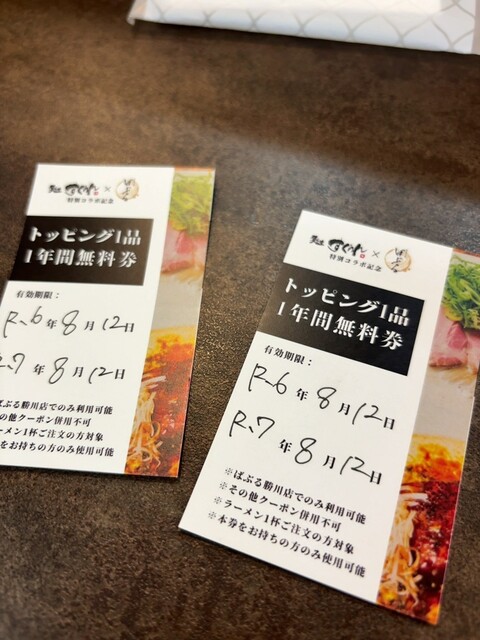 ×
特別コラボ記念
トッピング1品
1年間無料券
有効期限：
R.6年8月12日
R.7年8月12日
ばぶる勝川店でのみ利用可能
の他クーポン併用不可
ーメン1杯ご注文の方対象
をお持ちの方のみ使用可能
×
特別コラボ記念
トッピング1品
1年間無料券
有効期限：
R.6年8月12日
R.7年8月12日
※ばぶる勝川店でのみ利用可能
※その他クーポン併用不可
※ラーメン1杯ご注文の方対象
※本券をお持ちの方のみ使用可能